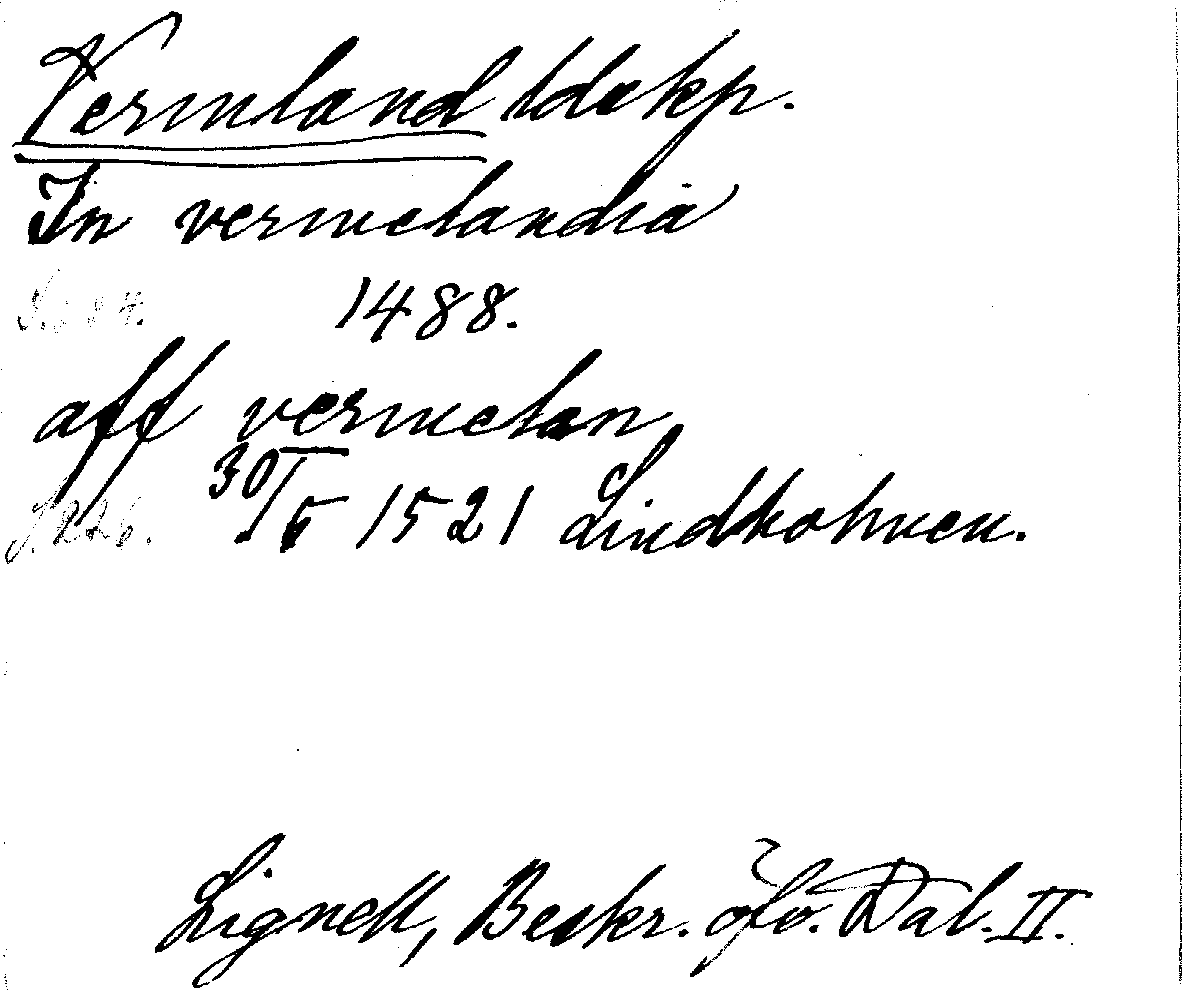 Vermland ldskp.
In vermelandia
1488.
aff vermelan
30/5 1521 Lindholmen.
Lignell, Beskr. öfv. Dal. II.